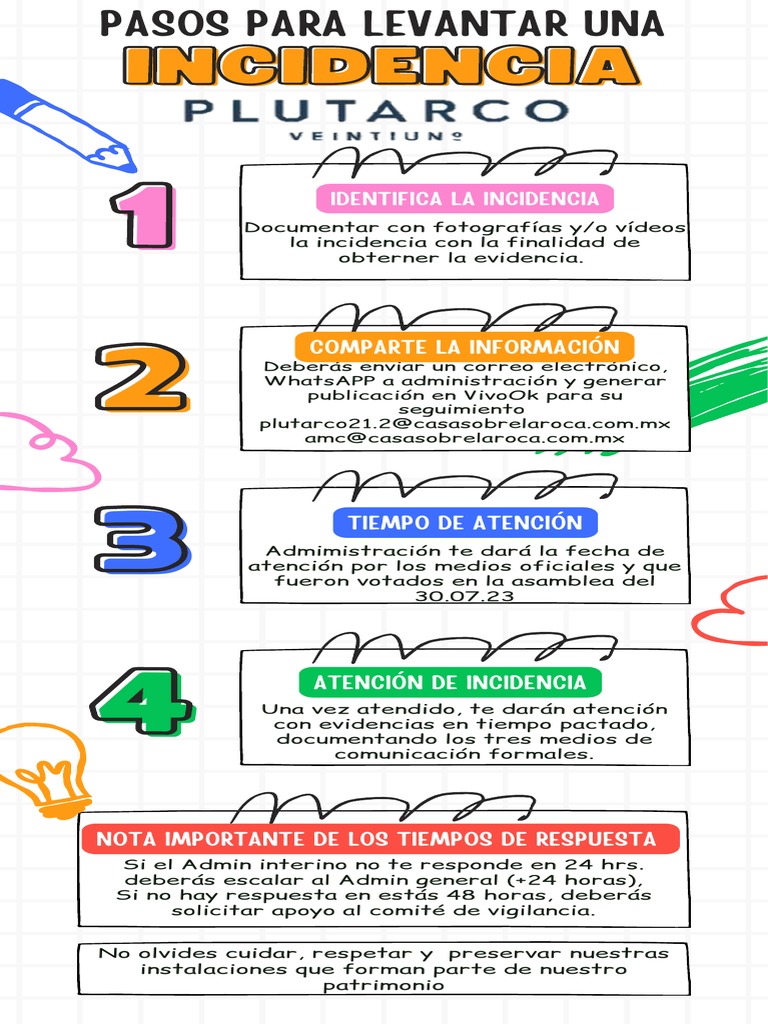 PASOS PARA LEVANTAR UNA
INCIDENCIA
PLUTARCO
VEINTIUNº
1
IDENTIFICA LA INCIDENCIA
Documentar con fotografías y/o vídeos
la incidencia con la finalidad de
obterner la evidencia.
2
COMPARTE LA INFORMACIÓN
Deberás enviar un correo electrónico,
WhatsAPP a administración y generar
publicación en VivoOk para su
seguimiento
plutarco21.2@casasobrelaroca.com.mx
amc@casasobrelaroca.com.mx
3
TIEMPO DE ATENCIÓN
Admimistración te dará la fecha de
atención por los medios oficiales y que
fueron votados en la asamblea del
30.07.23
4
ATENCIÓN DE INCIDENCIA
Una vez atendido, te darán atención
con evidencias en tiempo pactado,
documentando los tres medios de
comunicación formales.
NOTA IMPORTANTE DE LOS TIEMPOS DE RESPUESTA
Si el Admin interino no te responde en 24 hrs.
deberás escalar al Admin general (+24 horas),
Si no hay respuesta en estás 48 horas, deberás
solicitar apoyo al comité de vigilancia.
No olvides cuidar, respetar y  preservar nuestras
instalaciones que forman parte de nuestro
patrimonio